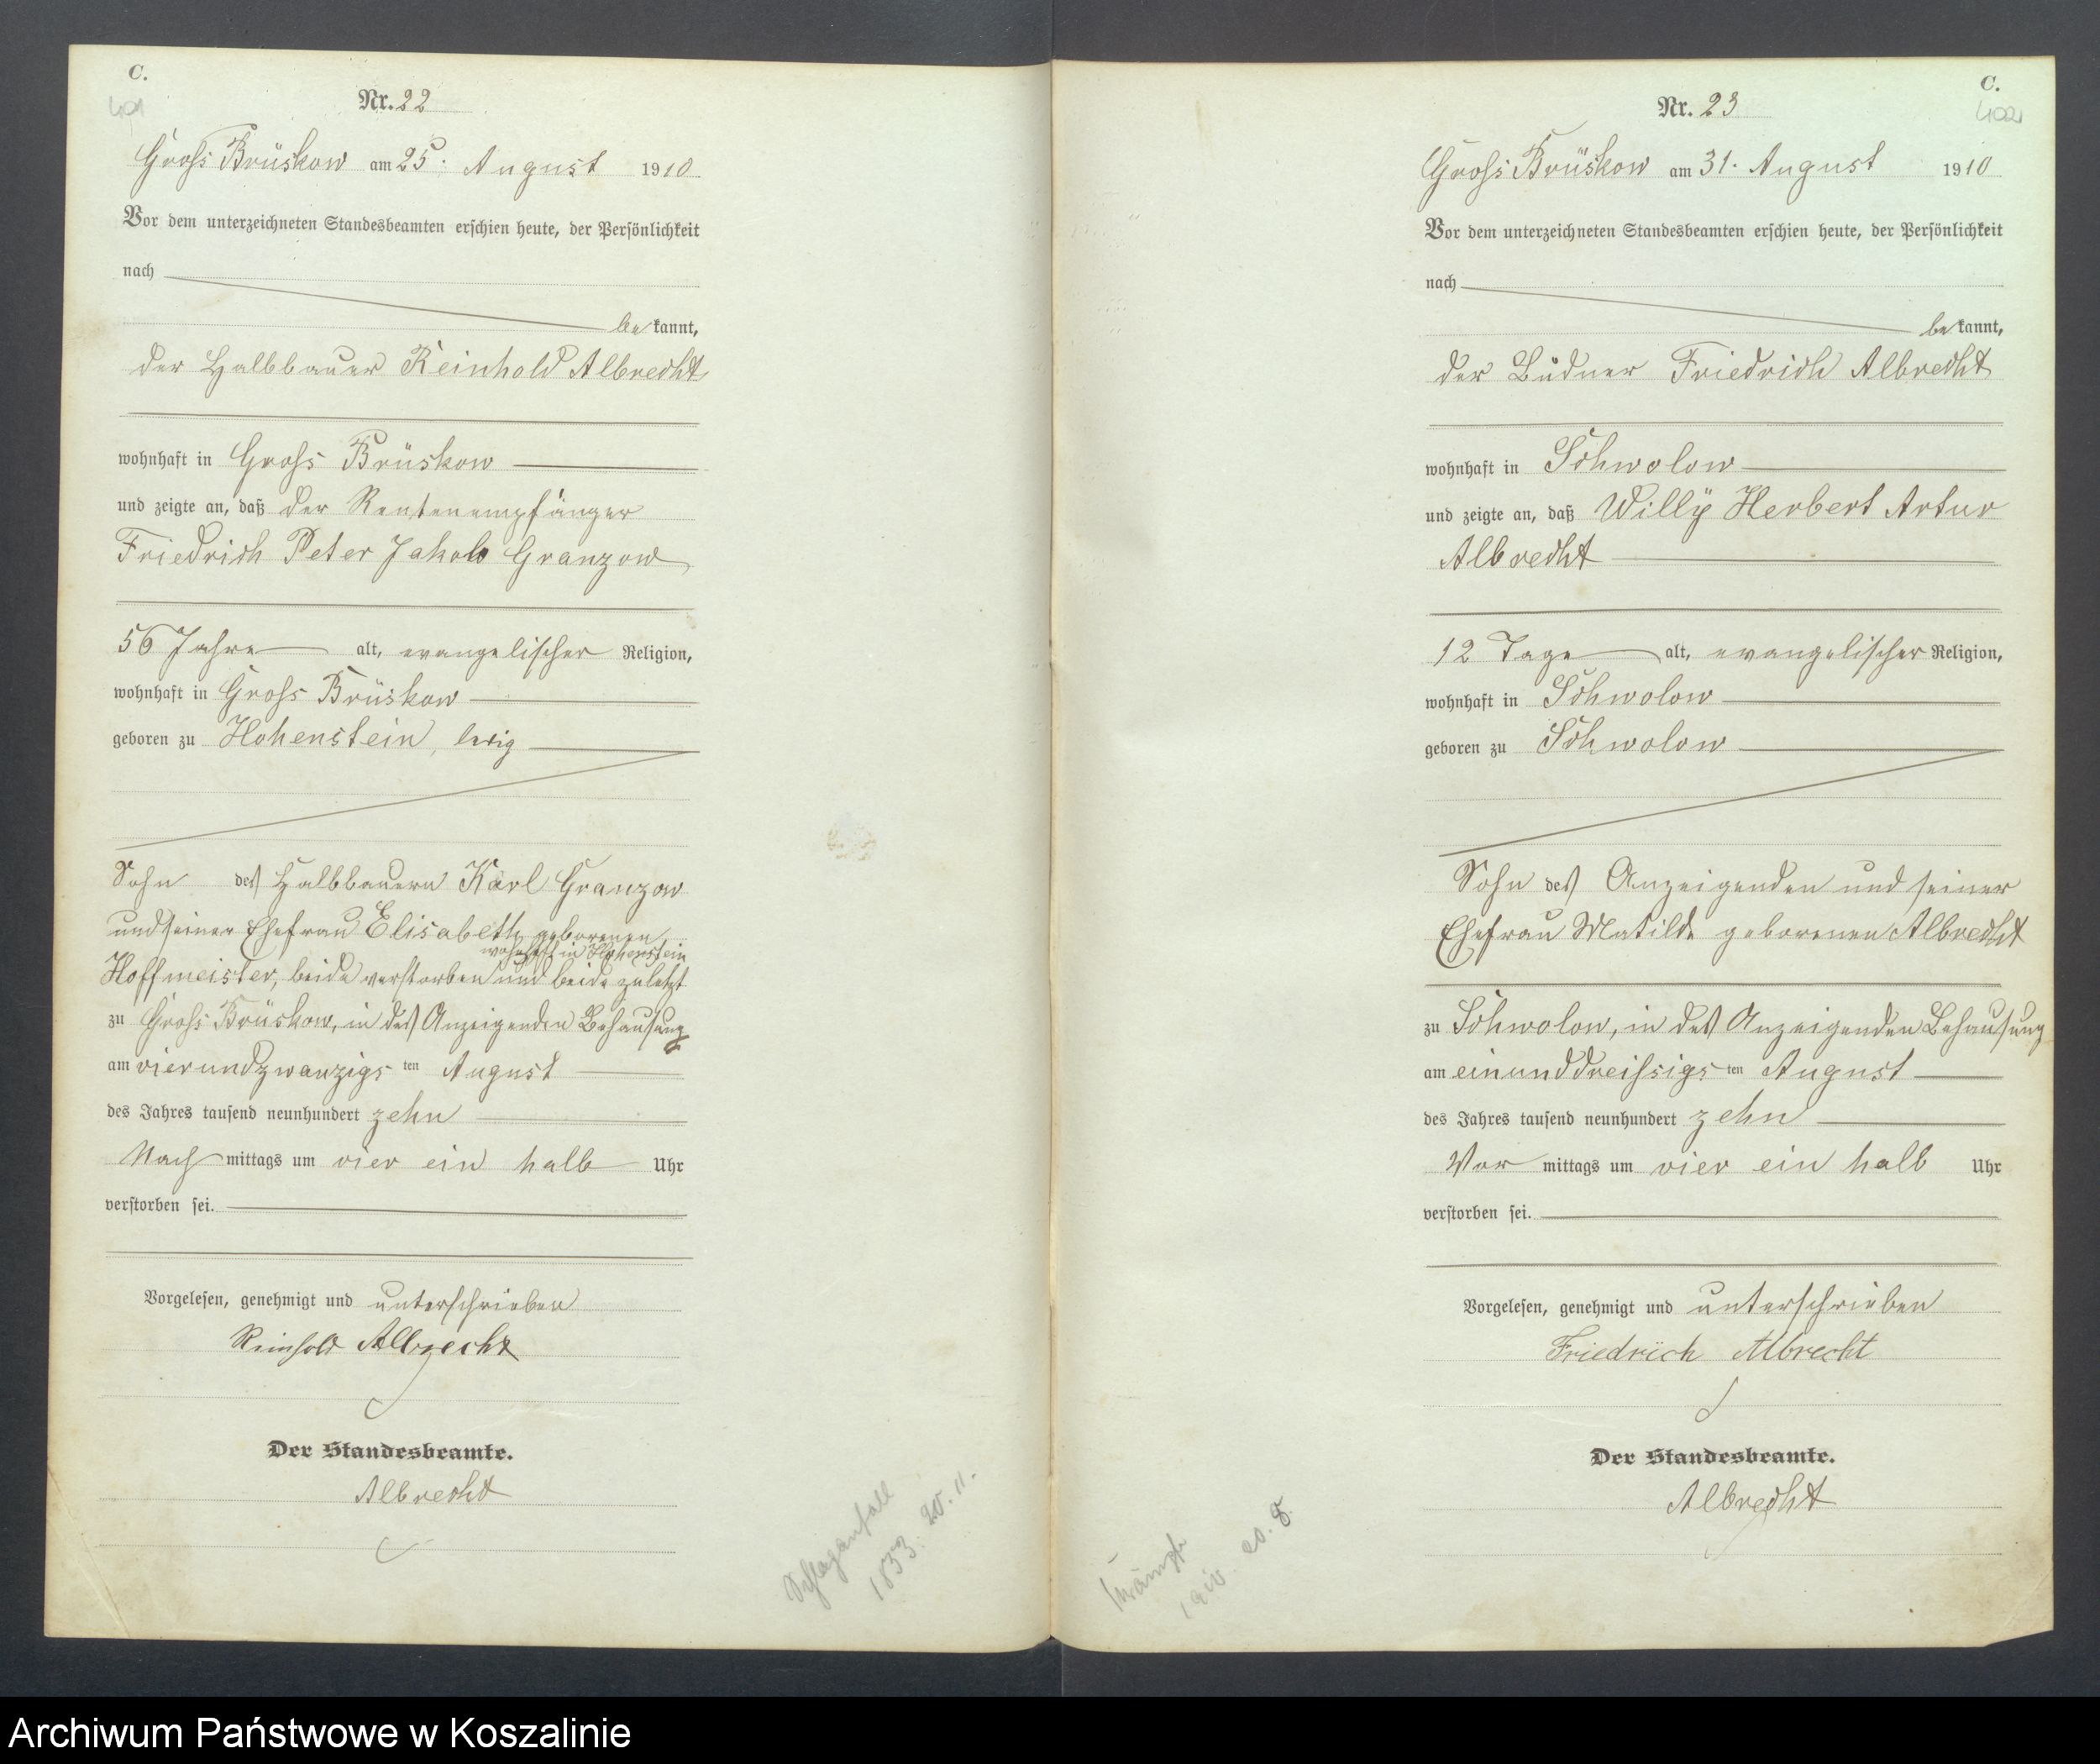 C.
401
Nr. 22
Groß Brüskow am 25. August 1910
Vor dem unterzeichneten Standesbeamten erschien heute, der Persönlichkeit
nach
be kannt,
der Halbbauer Reinhold Albrecht
wohnhaft in Groß Brüskow
und zeigte an, daß der Rentenempfänger
Friedrich Peter Jakob Granzow
56 Jahre alt, evangelischer Religion,
wohnhaft in Groß Brüskow
geboren zu Hohenstein, ledig
Sohn des Halbbauern Karl Granzow
und seiner Ehefrau Elisabeth geborenen
wohnhaft in Hohenstein
Hoffmeister, beide verstorben und beide zuletzt
zu Groß Brüskow, in des Anzeigenden Behausung
am vierundzwanzigs ten August
des Jahres tausend neunhundert zehn
Nach mittags um vier ein halb Uhr
verstorben sei.
Vorgelesen, genehmigt und unterschrieben
Reinhold Albrecht
Der Standesbeamte.
Albrecht
Schlaganfall
1853. 20. 11.
C.
402
Nr. 23
Groß Brüskow am 31. August 1910
Vor dem unterzeichneten Standesbeamten erschien heute, der Persönlichkeit
nach
be kannt,
der Büdner Friedrich Albrecht
wohnhaft in Schwolow
und zeigte an, daß Willÿ Herbert Artur
Albrecht
12 Tage alt, evangelischer Religion,
wohnhaft in Schwolow
geboren zu Schwolow
Sohn des Anzeigenden und seiner
Ehefrau Matilde geborenen Albrecht
zu Schwolow, in des Anzeigenden Behausung
am einunddreißigs ten August
des Jahres tausend neunhundert zehn
Vor mittags um vier ein halb Uhr
verstorben sei.
Vorgelesen, genehmigt und unterschrieben
Friedrich Albrecht
Der Standesbeamte.
Albrecht
Krämpfe
1910. 20. 8.
Archiwum Państwowe w Koszalinie